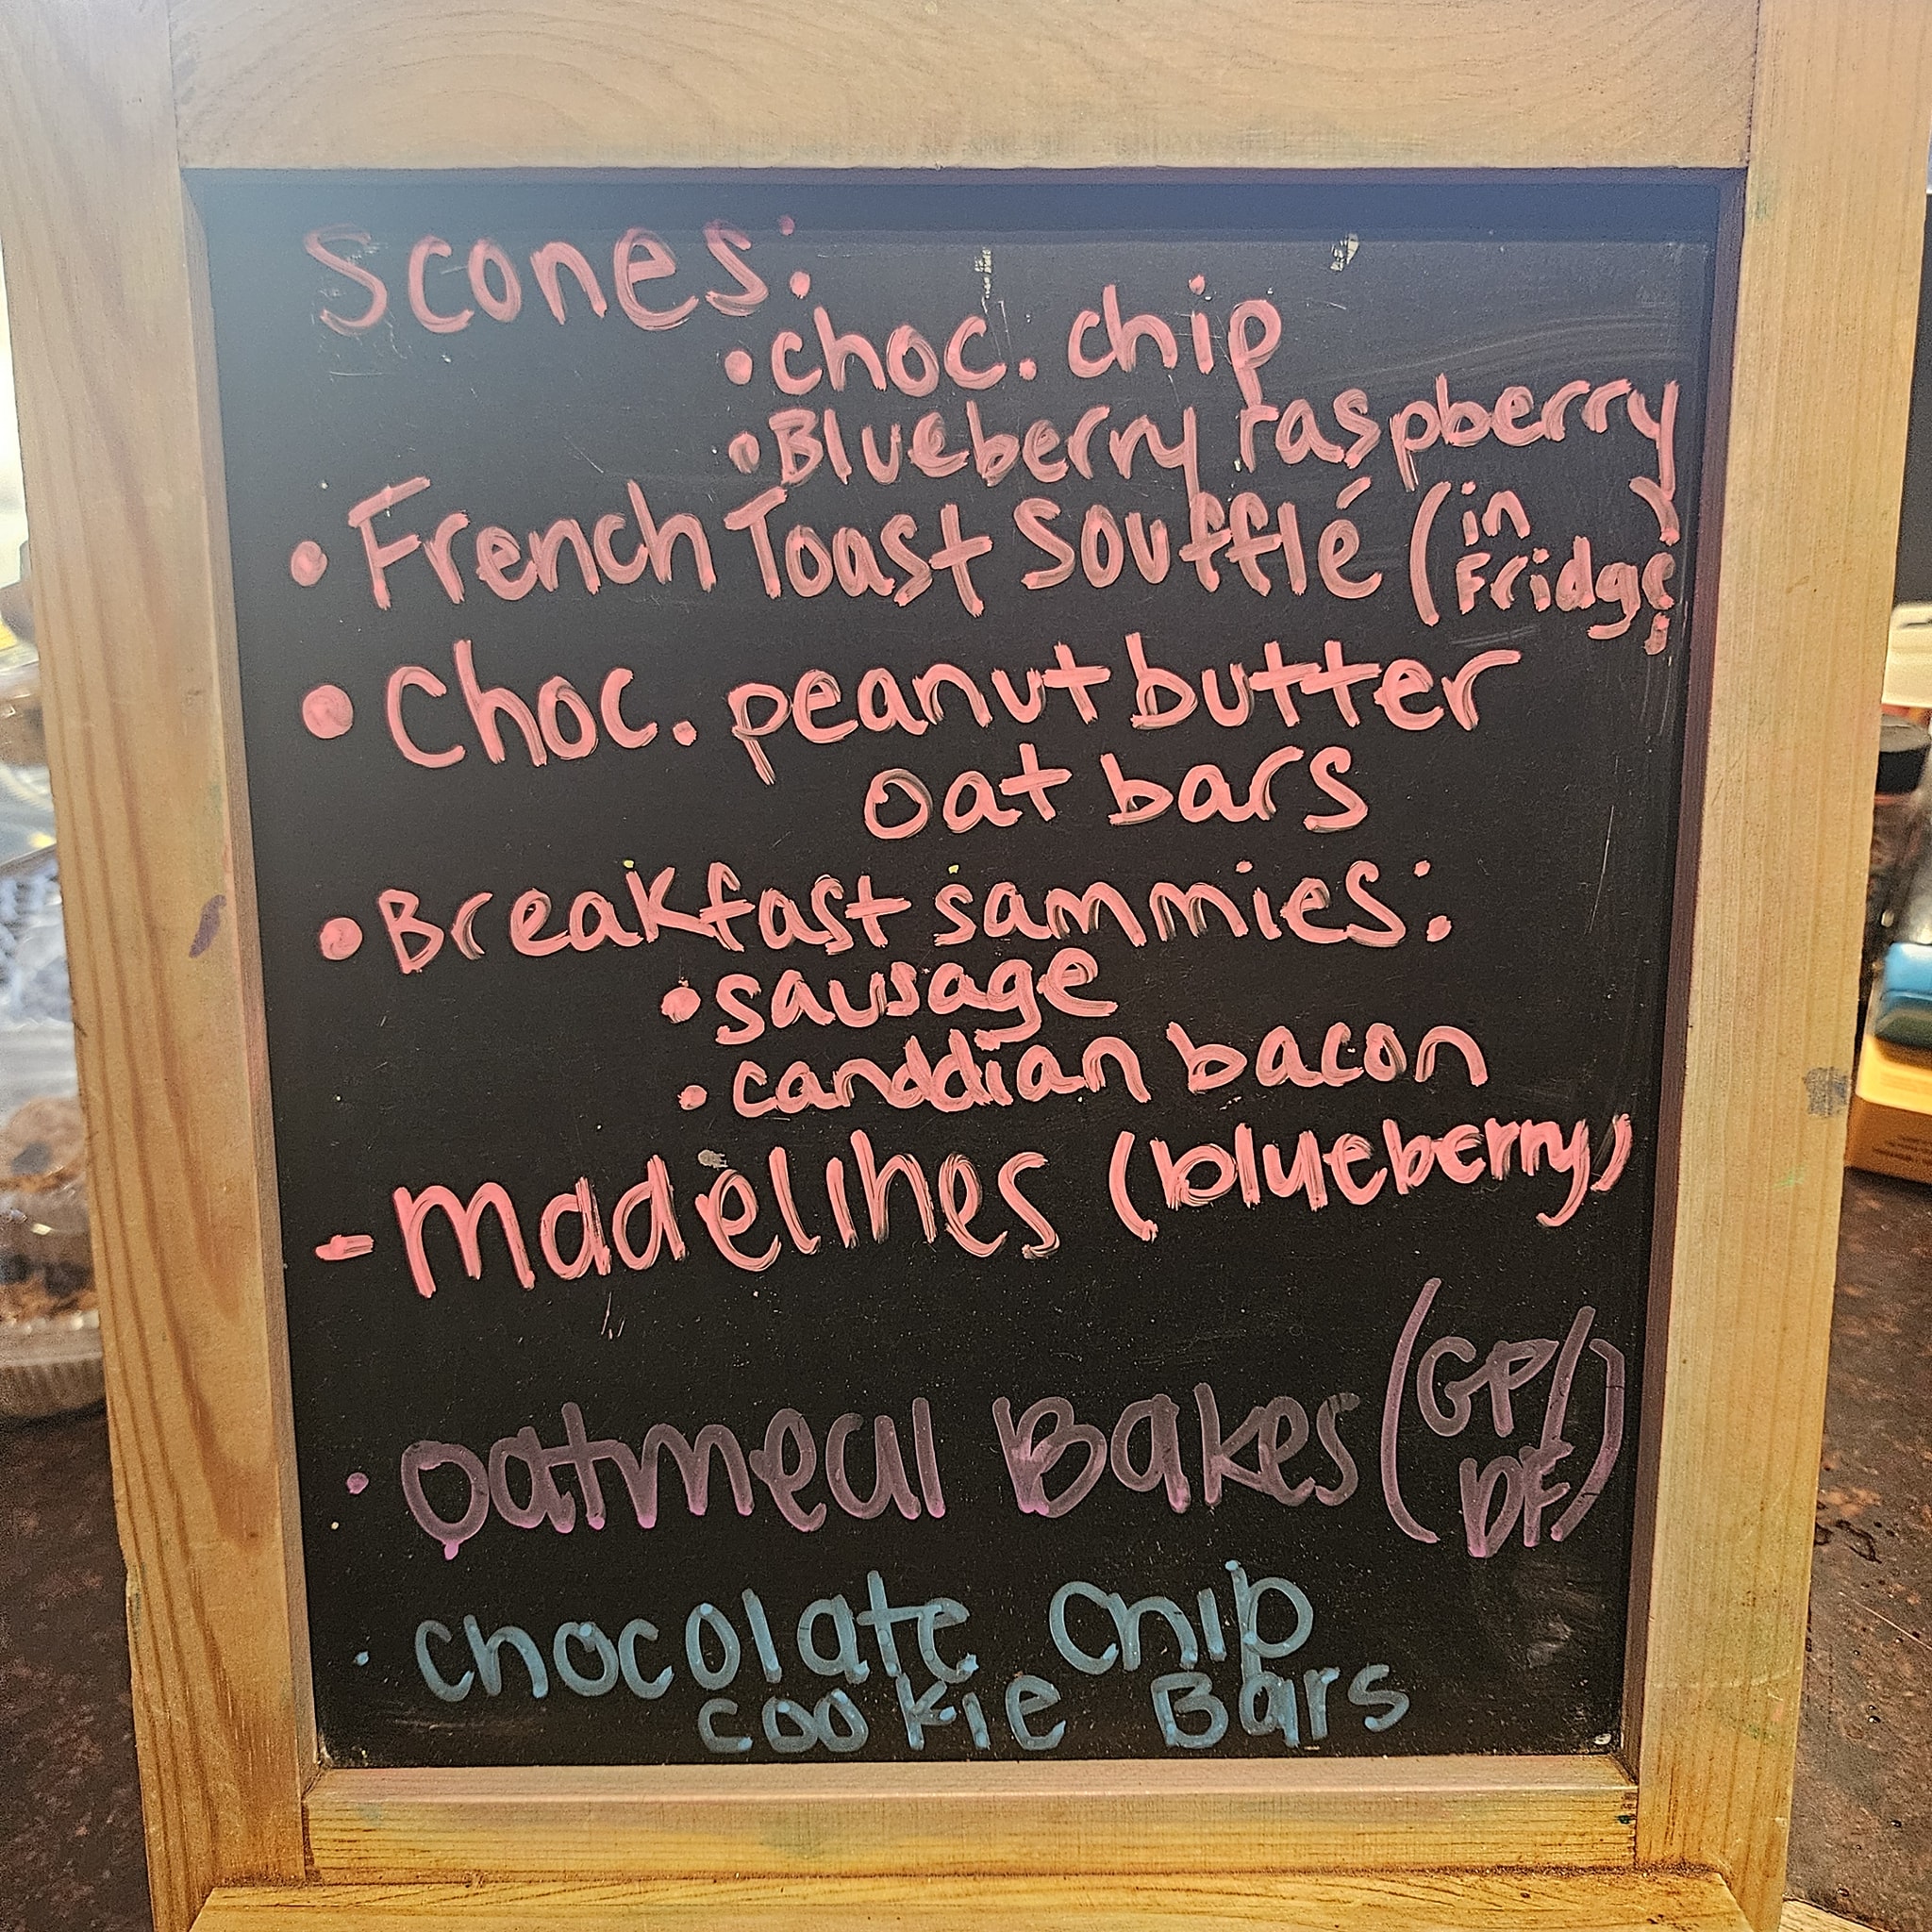 Scones:
• choc. chip
• Blueberry raspberry
• French Toast Soufflé (in Fridge)
• Choc. peanut butter
oat bars
• Breakfast sammies:
• sausage
• canddian bacon
- Madelines (blueberry)
• Oatmeal Bakes (GF/
DF)
• Chocolate Chip
Cookie Bars